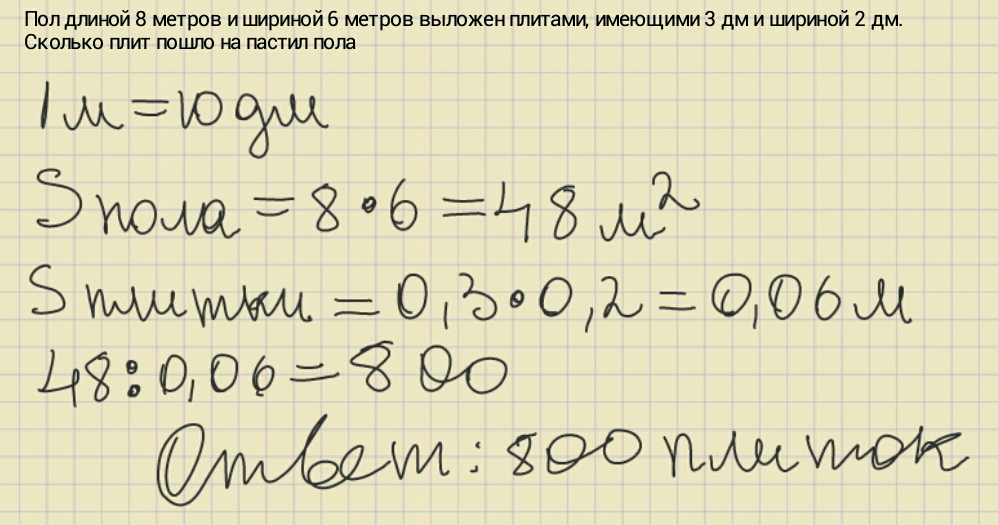 Пол длиной 8 метров и шириной 6 метров выложен плитами, имеющими 3 дм и шириной 2 дм.
Сколько плит пошло на пастил пола
1 м = 10 дм
S пола = 8 • 6 = 48 м²
S плитки = 0,3 • 0,2 = 0,06 м
48 : 0,06 = 800
Ответ : 800 плиток